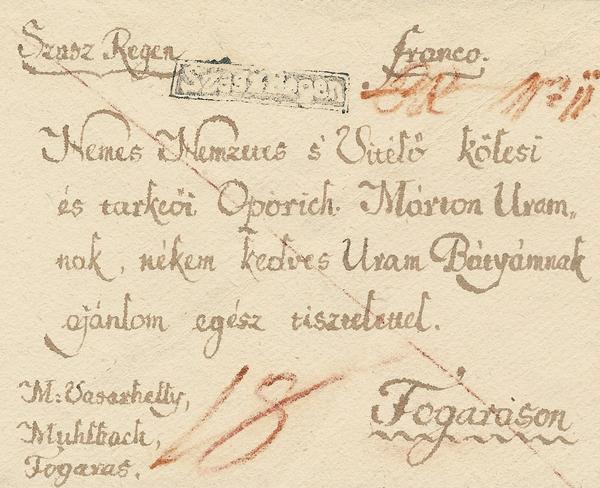 Szasz Regen
franco.
Szász Regen
Nemes Nemzetes s' Vitéló kölesi
és tarkeöi Oporich Márton Uram„
nak, nékem kedves Uram Bátyámnak
ajánlom egész tisztelettel.
M: Vasarhelly,
Muhlbach,
Fogaras.
18
Fogarason